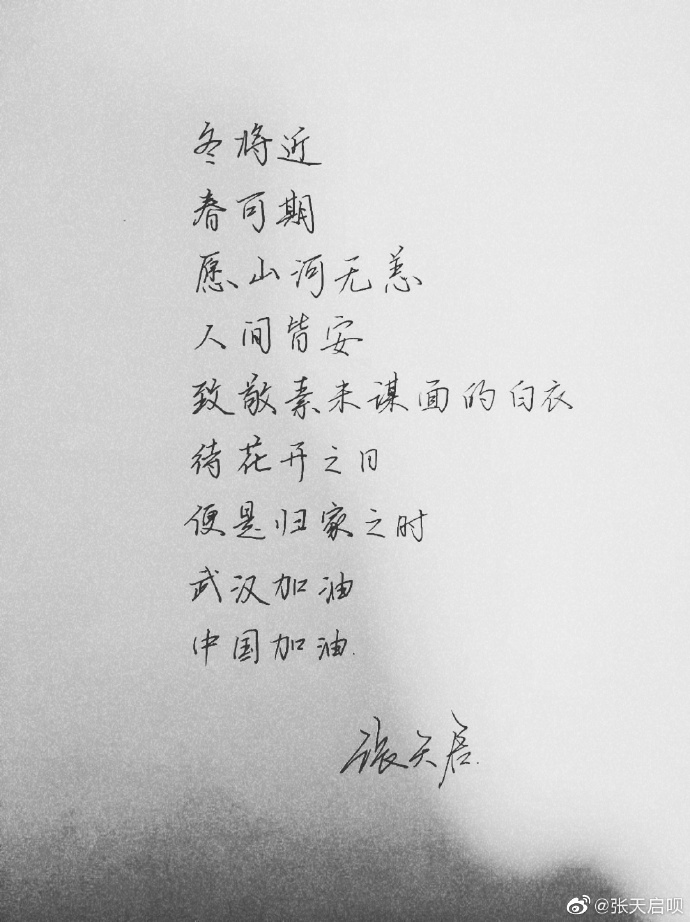 冬将近
春可期
愿山河无恙
人间皆安
致敬素未谋面的白衣
待花开之日
便是归家之时
武汉加油
中国加油.
张天启.
@张天启呗